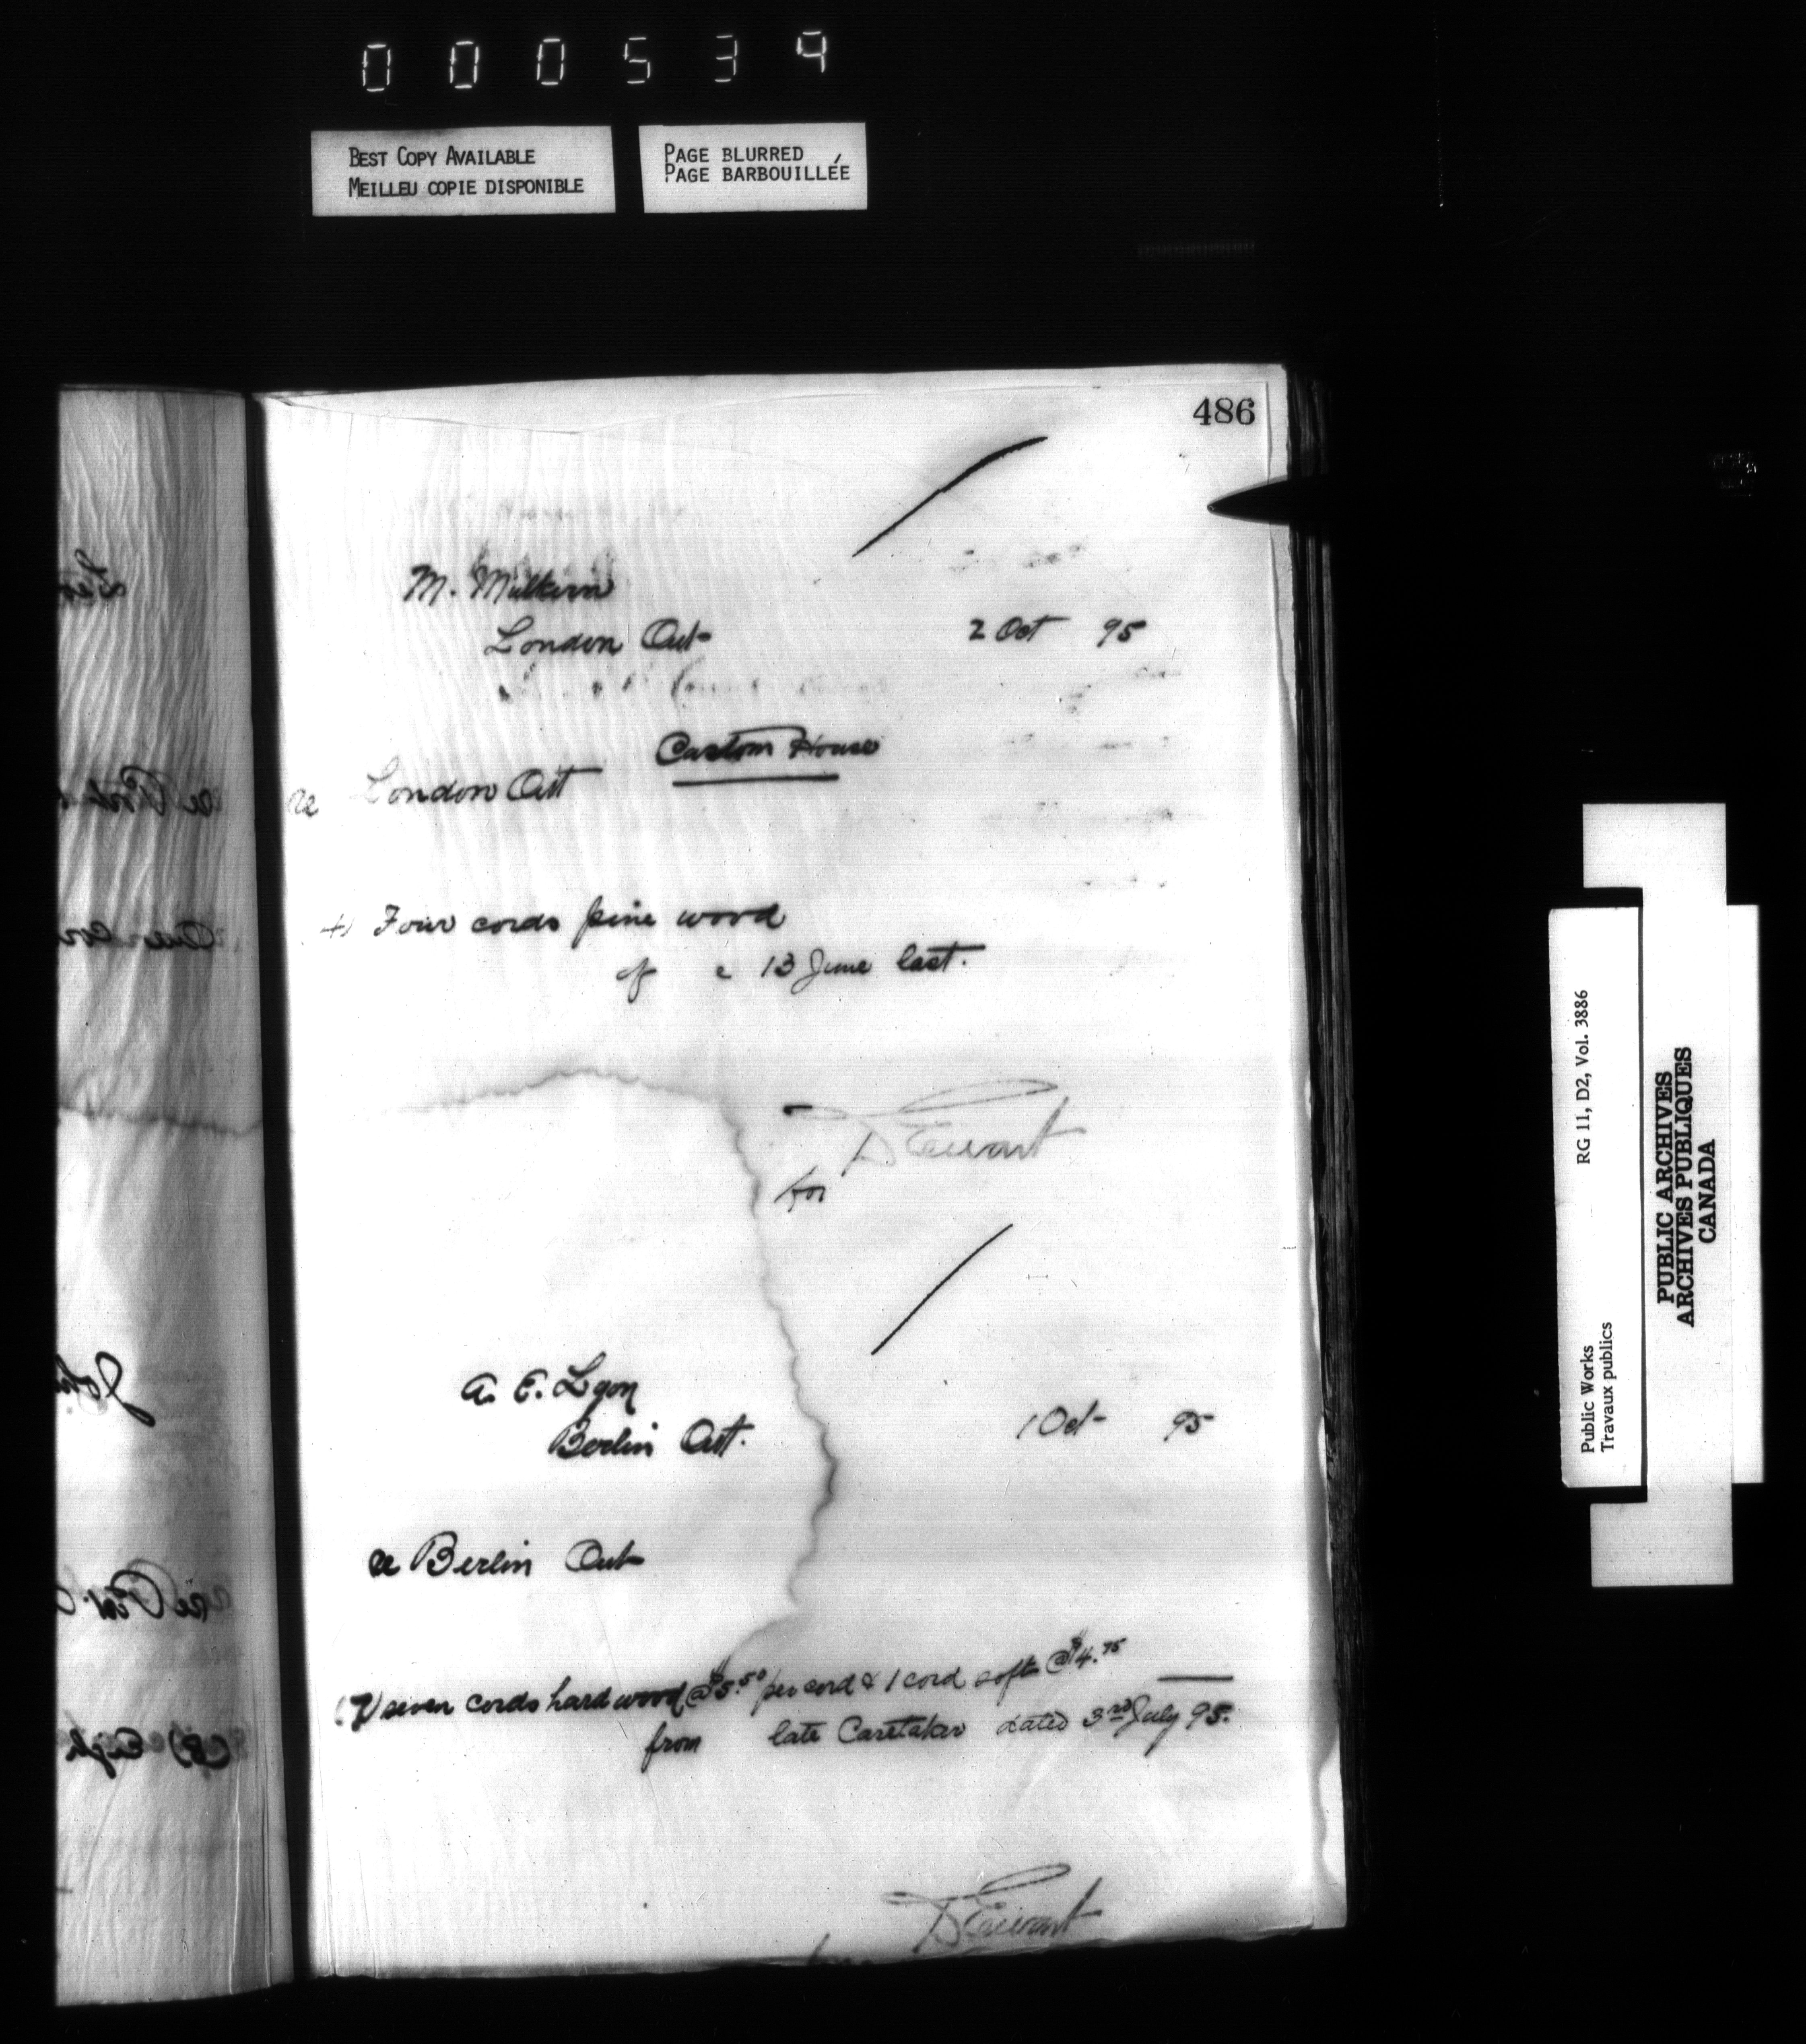 000534
BEST COPY AVAILABLE
MEILLEU COPIE DISPONIBLE
PAGE BLURRED
PAGE BARBOUILLÉE
486
M. Mulkern
London Ont
2 Oct 95
Custom House
re London Ont
4) Four cords pine wood
of 13 June last.
D Ewart
for
A. E. Lyon
Berlin Ont.
1 Oct 95
re Berlin Ont
(7) seven cords hard wood @ $5.50 per cord & 1 cord soft @ $4.75
from late Caretaker dated 3rd July 95.
D Ewart
RG 11, D2, Vol. 3886
Public Works
Travaux publics
PUBLIC ARCHIVES
ARCHIVES PUBLIQUES
CANADA